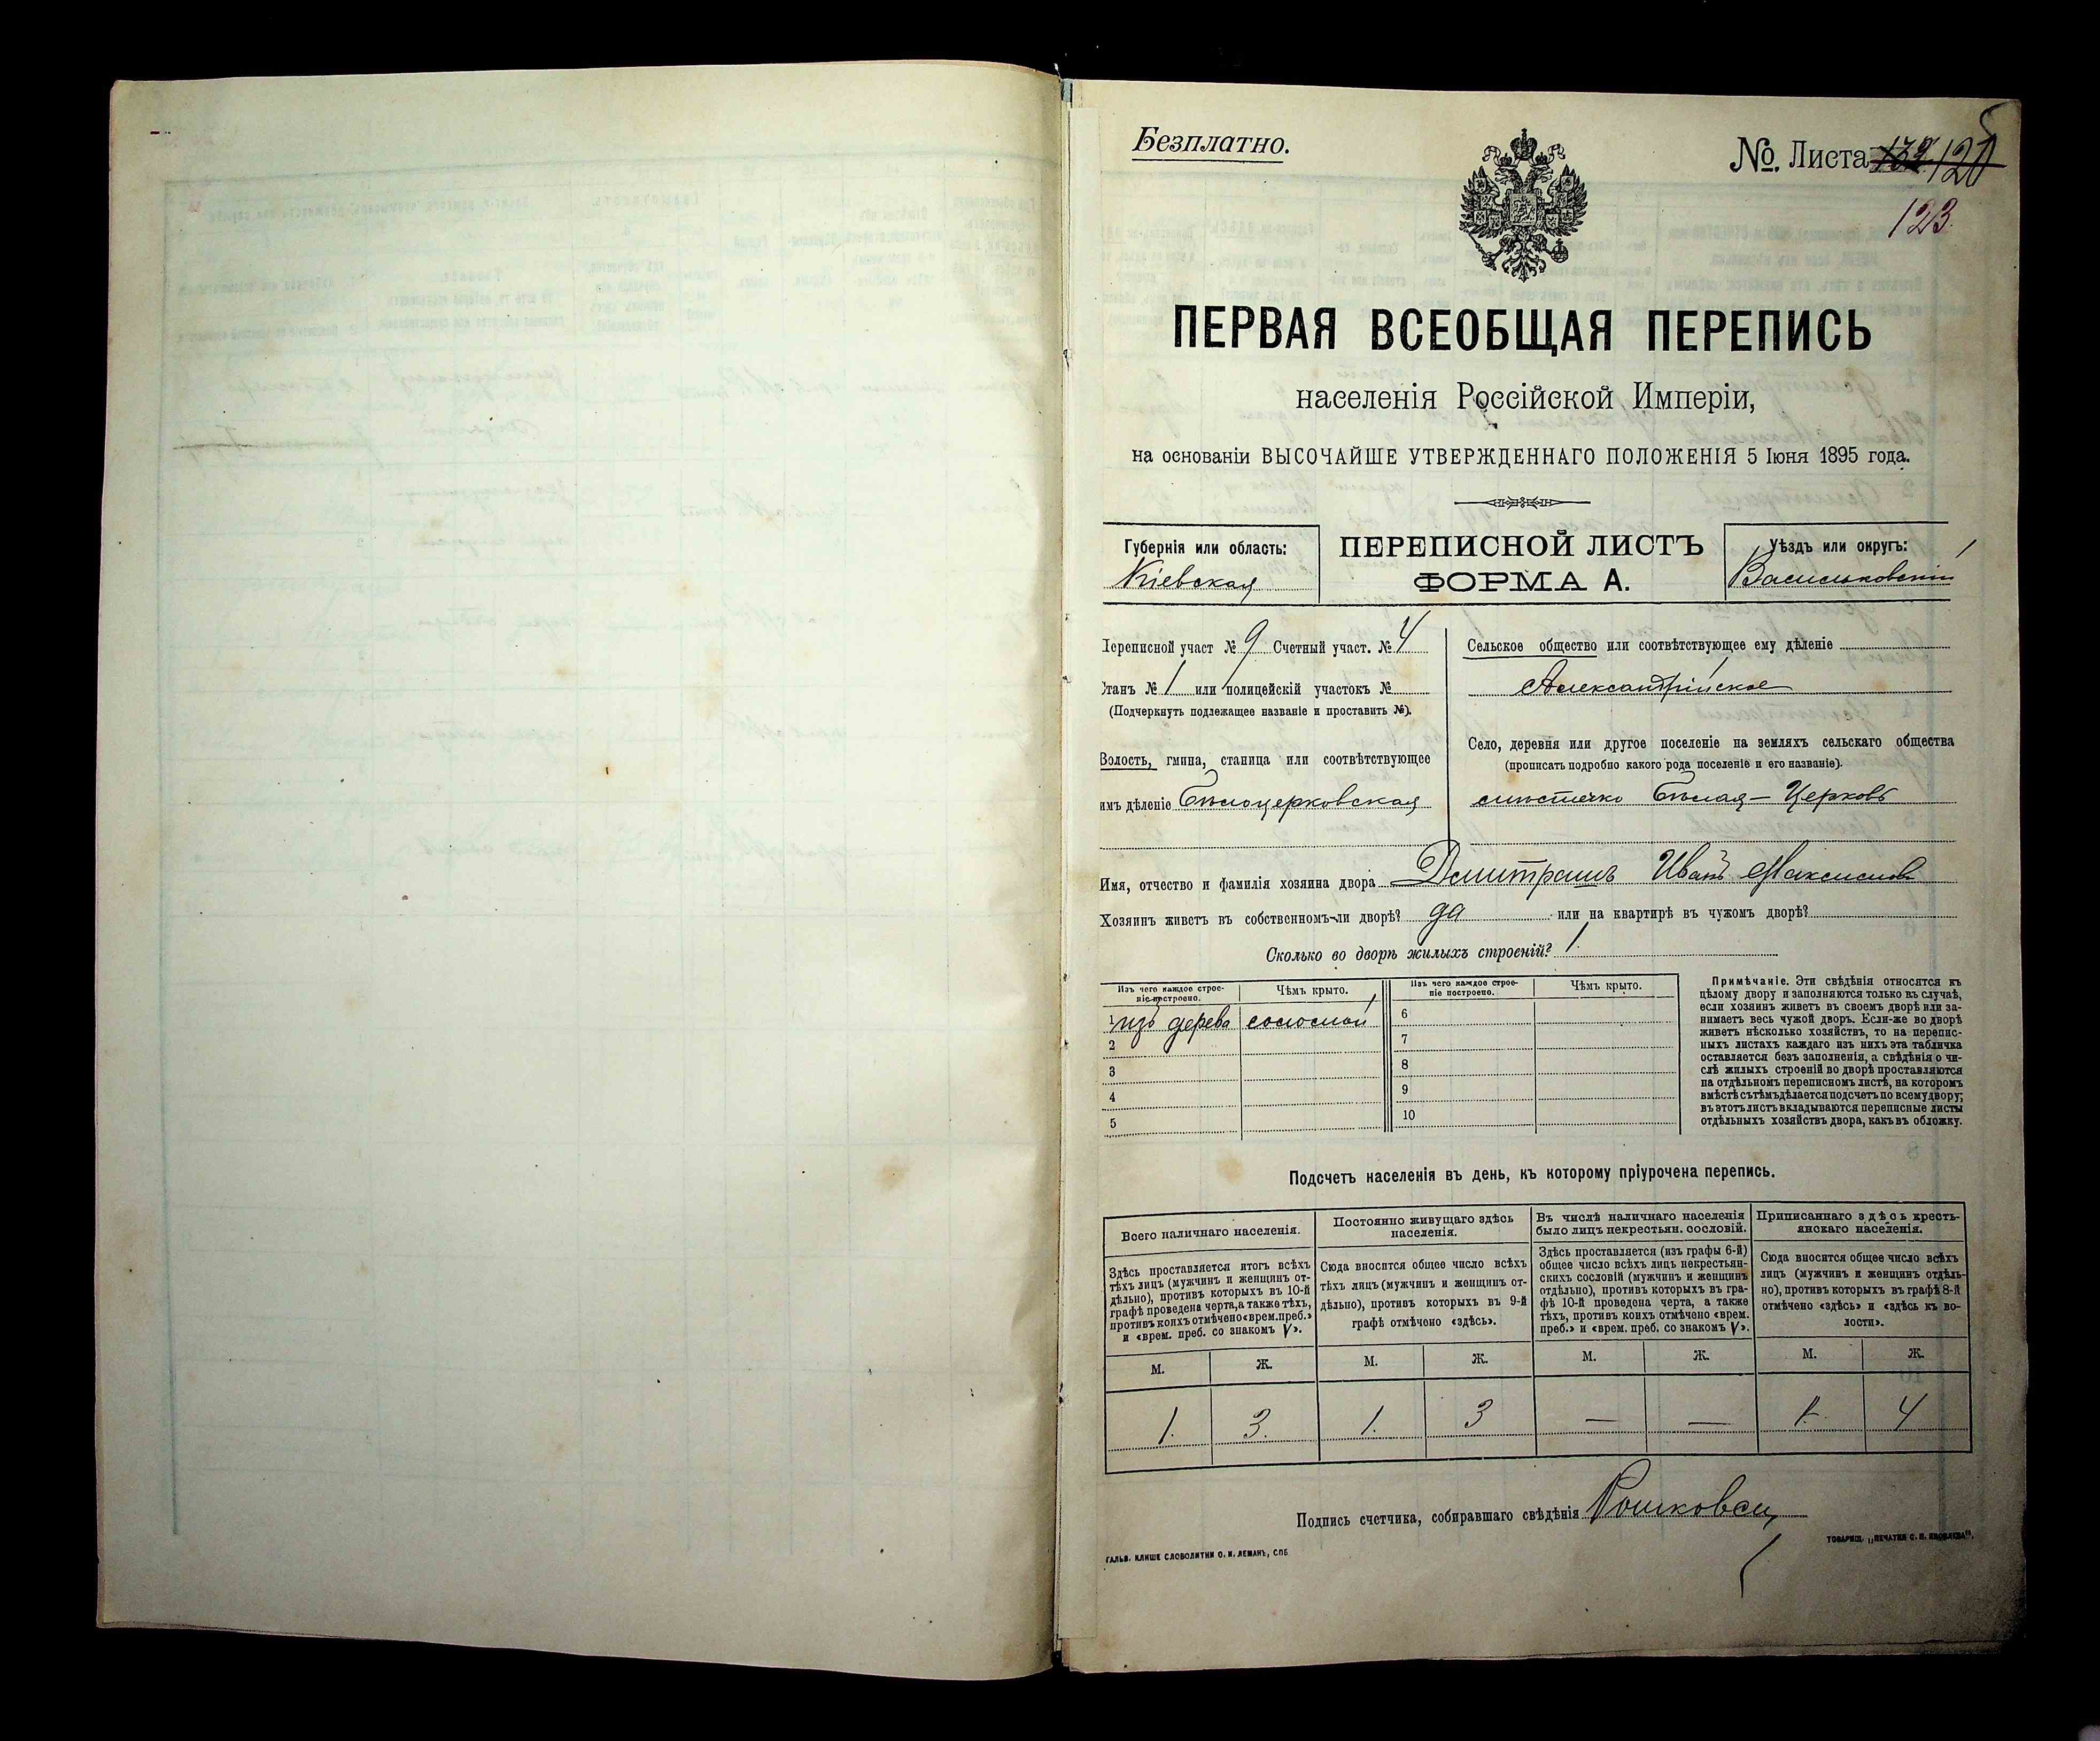 Безплатно.
№. Листа 120
123
ПЕРВАЯ ВСЕОБЩАЯ ПЕРЕПИСЬ
населенія Россійской Имперіи,
на основаніи ВЫСОЧАЙШЕ УТВЕРЖДЕННАГО ПОЛОЖЕНІЯ 5 Іюня 1895 года.
Губернія или область:
Кіевская
ПЕРЕПИСНОЙ ЛИСТЪ
ФОРМА А.
Уѣздъ или округъ:
Васильковскій
Переписной участ № 9 Счетный участ. № 4
Станъ № 1 или полицейскій участокъ №
(Подчеркнуть подлежащее названіе и проставить №).
Волость, гмина, станица или соотвѣтствующее
имъ дѣленіе Бѣлоцерковская
Сельское общество или соотвѣтствующее ему дѣленіе
Александрійское
Село, деревня или другое поселеніе на земляхъ сельскаго общества
(прописать подробно какого рода поселеніе и его названіе).
мѣстечко Бѣлая-Церковь
Имя, отчество и фамилія хозяина двора Димитрашъ Иванъ Максимовъ
Хозяинъ живетъ въ собственномъ-ли дворѣ? да или на квартирѣ въ чужомъ дворѣ?
Сколько во дворѣ жилыхъ строеній? 1.
Изъ чего каждое строе-
ніе построено.
Чѣмъ крыто.
Изъ чего каждое строе-
ніе построено.
Чѣмъ крыто.
1 изъ дерева соломой
2
3
4
5
6
7
8
9
10
Примѣчаніе. Эти свѣдѣнія относятся къ
цѣлому двору и заполняются только въ случаѣ,
если хозяинъ живетъ въ своемъ дворѣ или за-
нимаетъ весь чужой дворъ. Если-же во дворѣ
живетъ нѣсколько хозяйствъ, то на перепис-
ныхъ листахъ каждаго изъ нихъ эта табличка
оставляется безъ заполненія, а свѣдѣнія о чи-
слѣ жилыхъ строеній во дворѣ проставляются
на отдѣльномъ переписномъ листѣ, на которомъ
вмѣстѣ съ тѣмъ дѣлается подсчетъ по всему двору;
въ этотъ листъ вкладываются переписные листы
отдѣльныхъ хозяйствъ двора, какъ въ обложку.
Подсчетъ населенія въ день, къ которому пріурочена перепись.
Всего наличнаго населенія.
Здѣсь проставляется итогъ всѣхъ
тѣхъ лицъ (мужчинъ и женщинъ от-
дѣльно), противъ которыхъ въ 10-й
графѣ проведена черта, а также тѣхъ,
противъ коихъ отмѣчено «врем. преб.»
и «врем. преб. со знакомъ V».
Постоянно живущаго здѣсь
населенія.
Сюда вносится общее число всѣхъ
тѣхъ лицъ (мужчинъ и женщинъ от-
дѣльно), противъ которыхъ въ 9-й
графѣ отмѣчено «здѣсь».
Въ числѣ наличнаго населенія
было лицъ некрестьян. сословій.
Здѣсь проставляется (изъ графы 6-й)
общее число всѣхъ лицъ некрестьян-
скихъ сословій (мужчинъ и женщинъ
отдѣльно), противъ которыхъ въ гра-
фѣ 10-й проведена черта, а также
тѣхъ, противъ коихъ отмѣчено «врем.
преб.» и «врем. преб. со знакомъ V».
Приписаннаго здѣсь кресть-
янскаго населенія.
Сюда вносится общее число всѣхъ
лицъ (мужчинъ и женщинъ отдѣль-
но), противъ которыхъ въ графѣ 8-й
отмѣчено «здѣсь» и «здѣсь къ во-
лости».
М. Ж. М. Ж. М. Ж. М. Ж.
1. 3. 1. 3 — — 1. 4
Подпись счетчика, собиравшаго свѣдѣнія
ГАЛЬВ. КЛИШЕ СЛОВОЛИТНИ О. И. ЛЕМАНЪ, СПБ
ТОВАРИЩ. „ПЕЧАТНЯ С. П. ЯКОВЛЕВА".